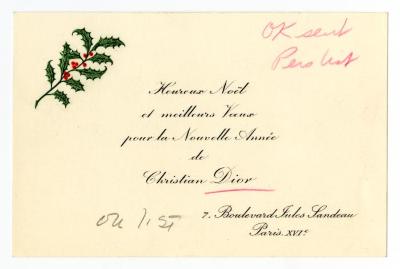 OK sent
Pers list
Heureux Noël
et meilleurs Vœux
pour la Nouvelle Année
de
Christian Dior
on list
7. Boulevard Jules Sandeau
Paris. XVIe